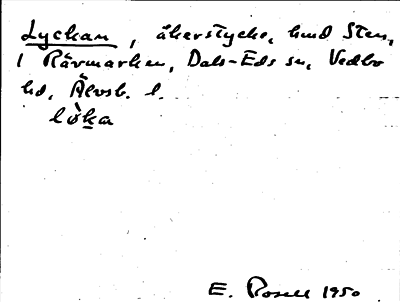 Lyckan, åkerstycke, hmd Sten,
1 Rävmarken, Dals-Eds sn, Vedbo
hd, Älvsb. l.
lò̱ka
E. Rosell 1950